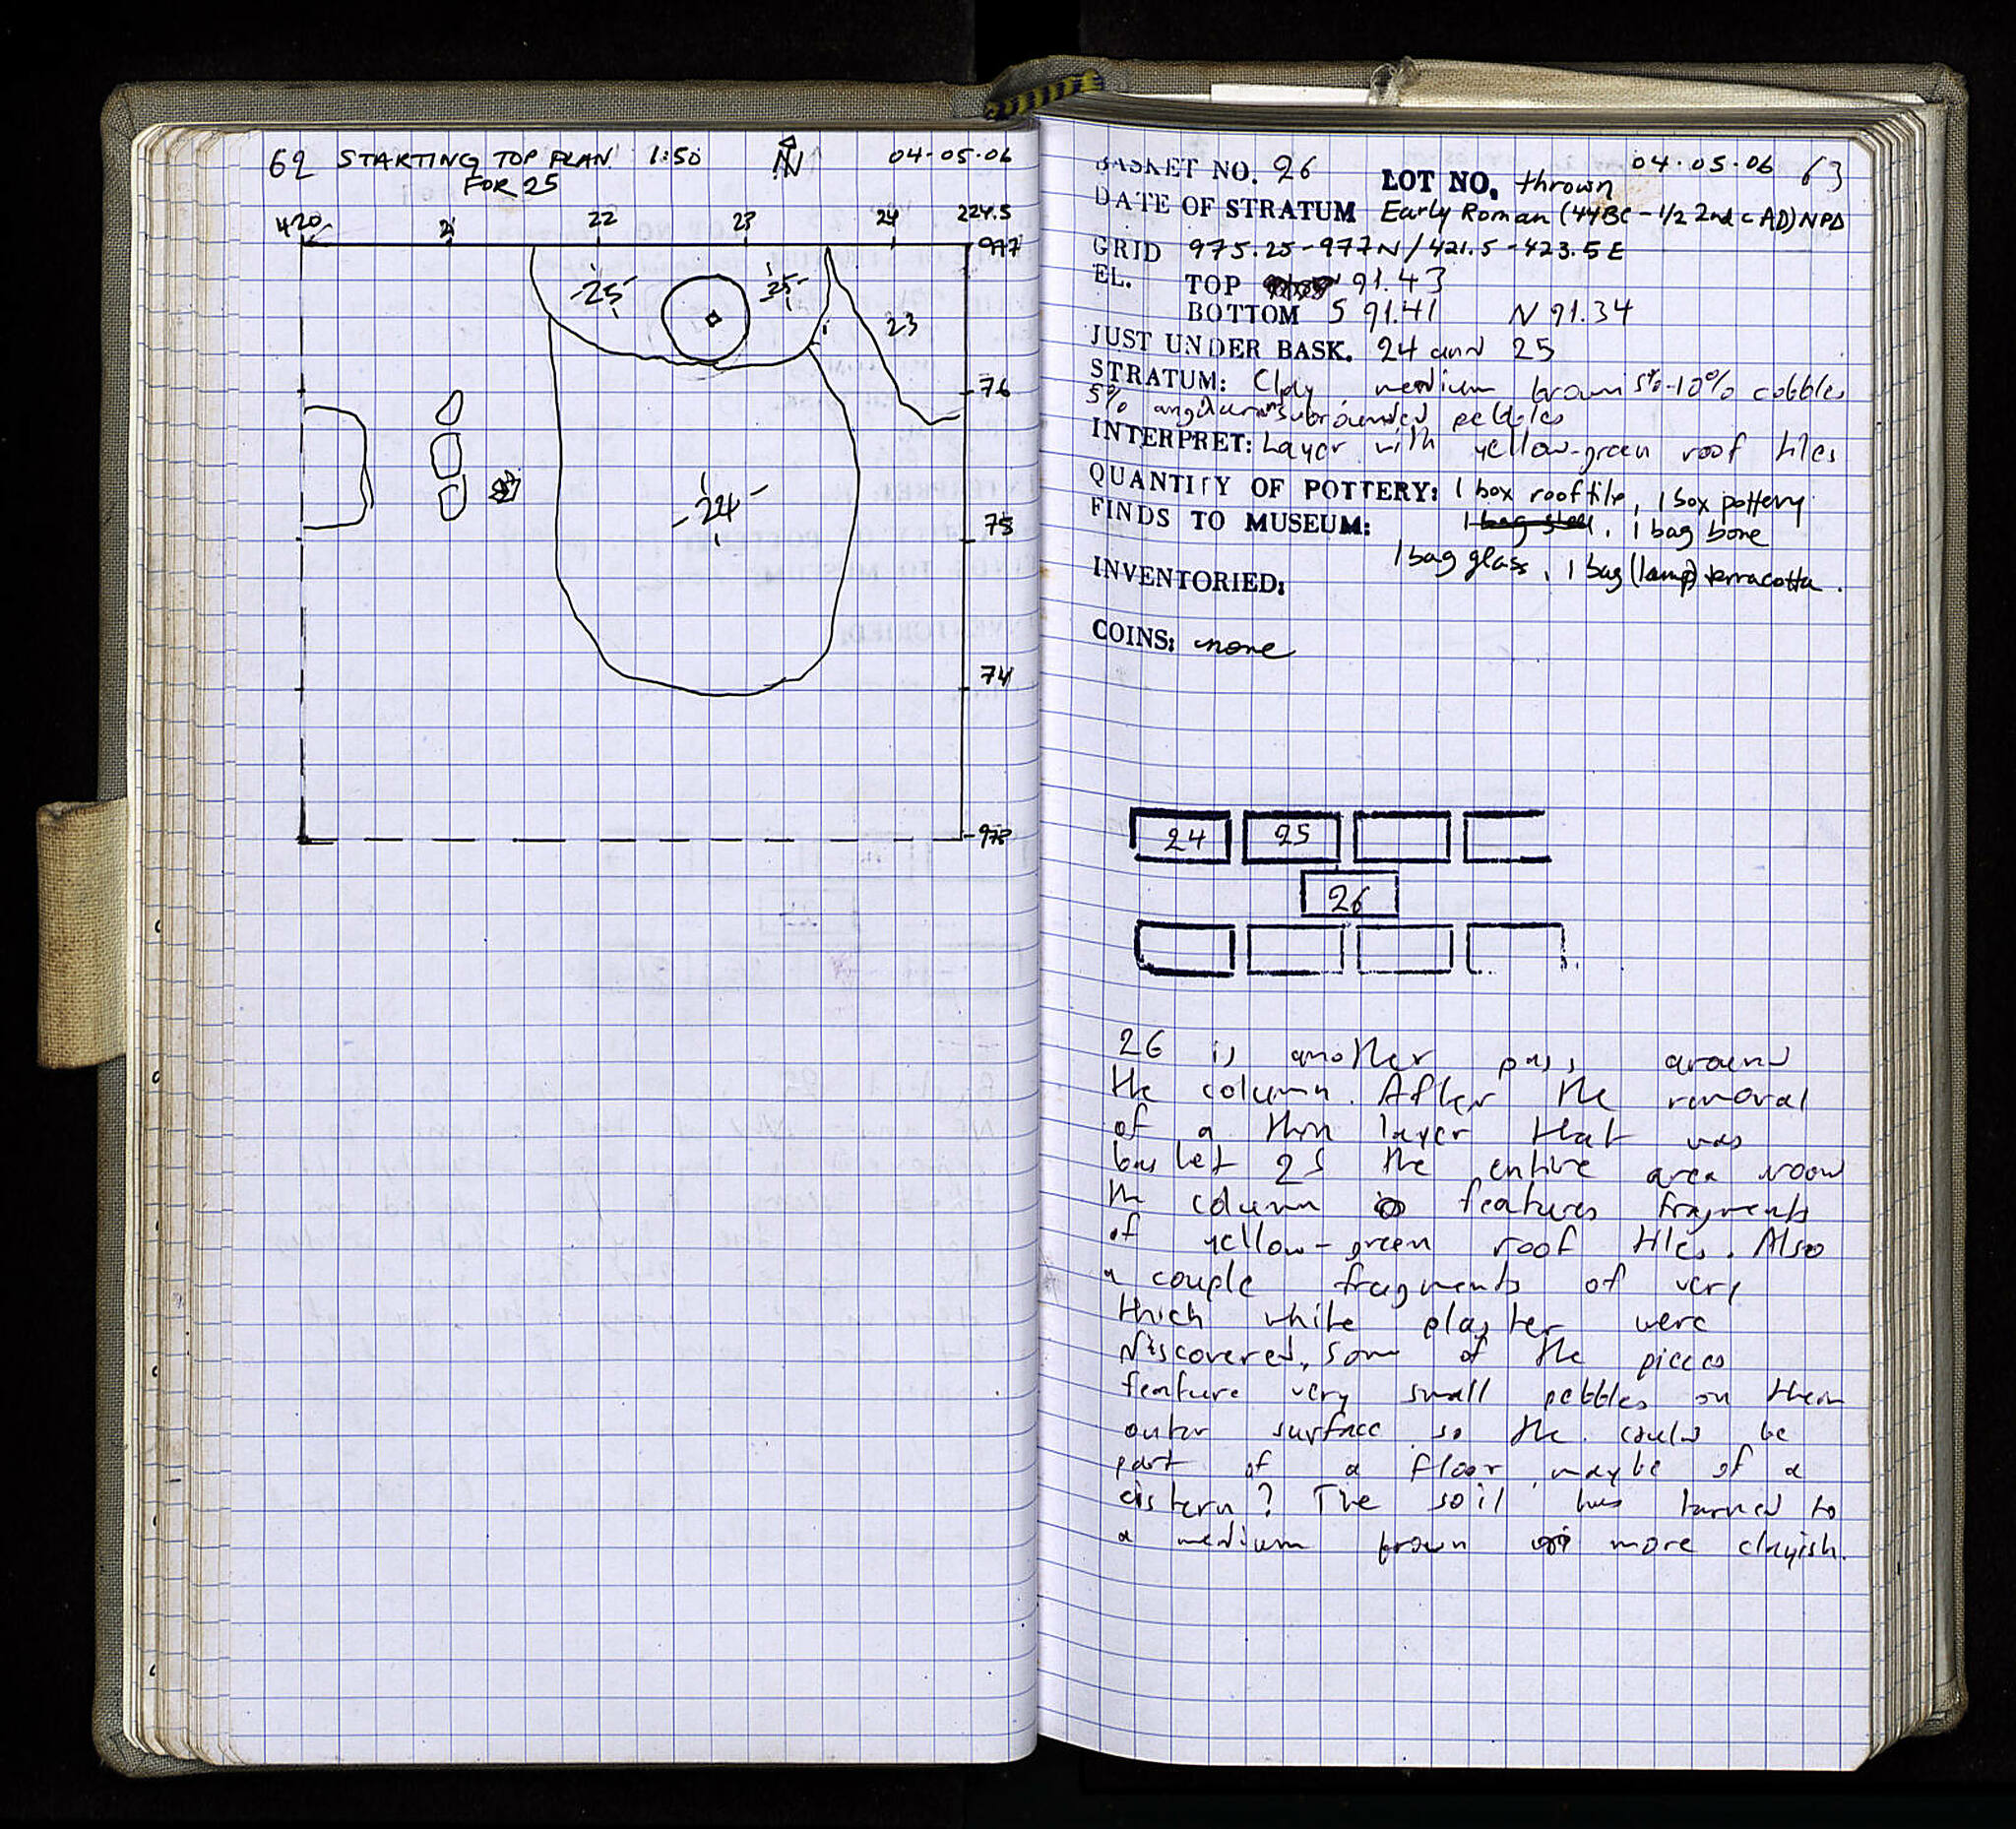 62 STARTING TOP PLAN 1:50 N 04-05-06
FOR 25
420 21 22 23 24 224.5
977
-25- -25-
23
76
75
-24-
74
973
BASKET NO. 26 LOT NO. thrown 04.05.06 63
DATE OF STRATUM Early Roman (44BC - 1/2 2nd c AD) NPD
GRID 975.25-977N/421.5-423.5E
EL. TOP 91.43
BOTTOM S 91.41 N 91.34
JUST UNDER BASK. 24 and 25
STRATUM: Clay medium brown 5%-10% cobbles
5% angular subrounded pebbles
INTERPRET: Layer with yellow-green roof tiles
QUANTITY OF POTTERY: 1 box rooftile, 1 box pottery
FINDS TO MUSEUM: 1 bag , 1 bag bone
1 bag glass, 1 bag (lamp) terracotta.
INVENTORIED:
COINS: none
24 25
26
26 is another pass around
the column. After the removal
of a thin layer that was
basket 25 the entire area
the column features fragments
of yellow-green roof tiles. Also
a couple fragments of very
thick white plaster were
discovered, some of the pieces
feature very small pebbles on them
outer surface so the could be
part of a floor, maybe of a
cistern? The soil has turned to
a medium brown more clayish.